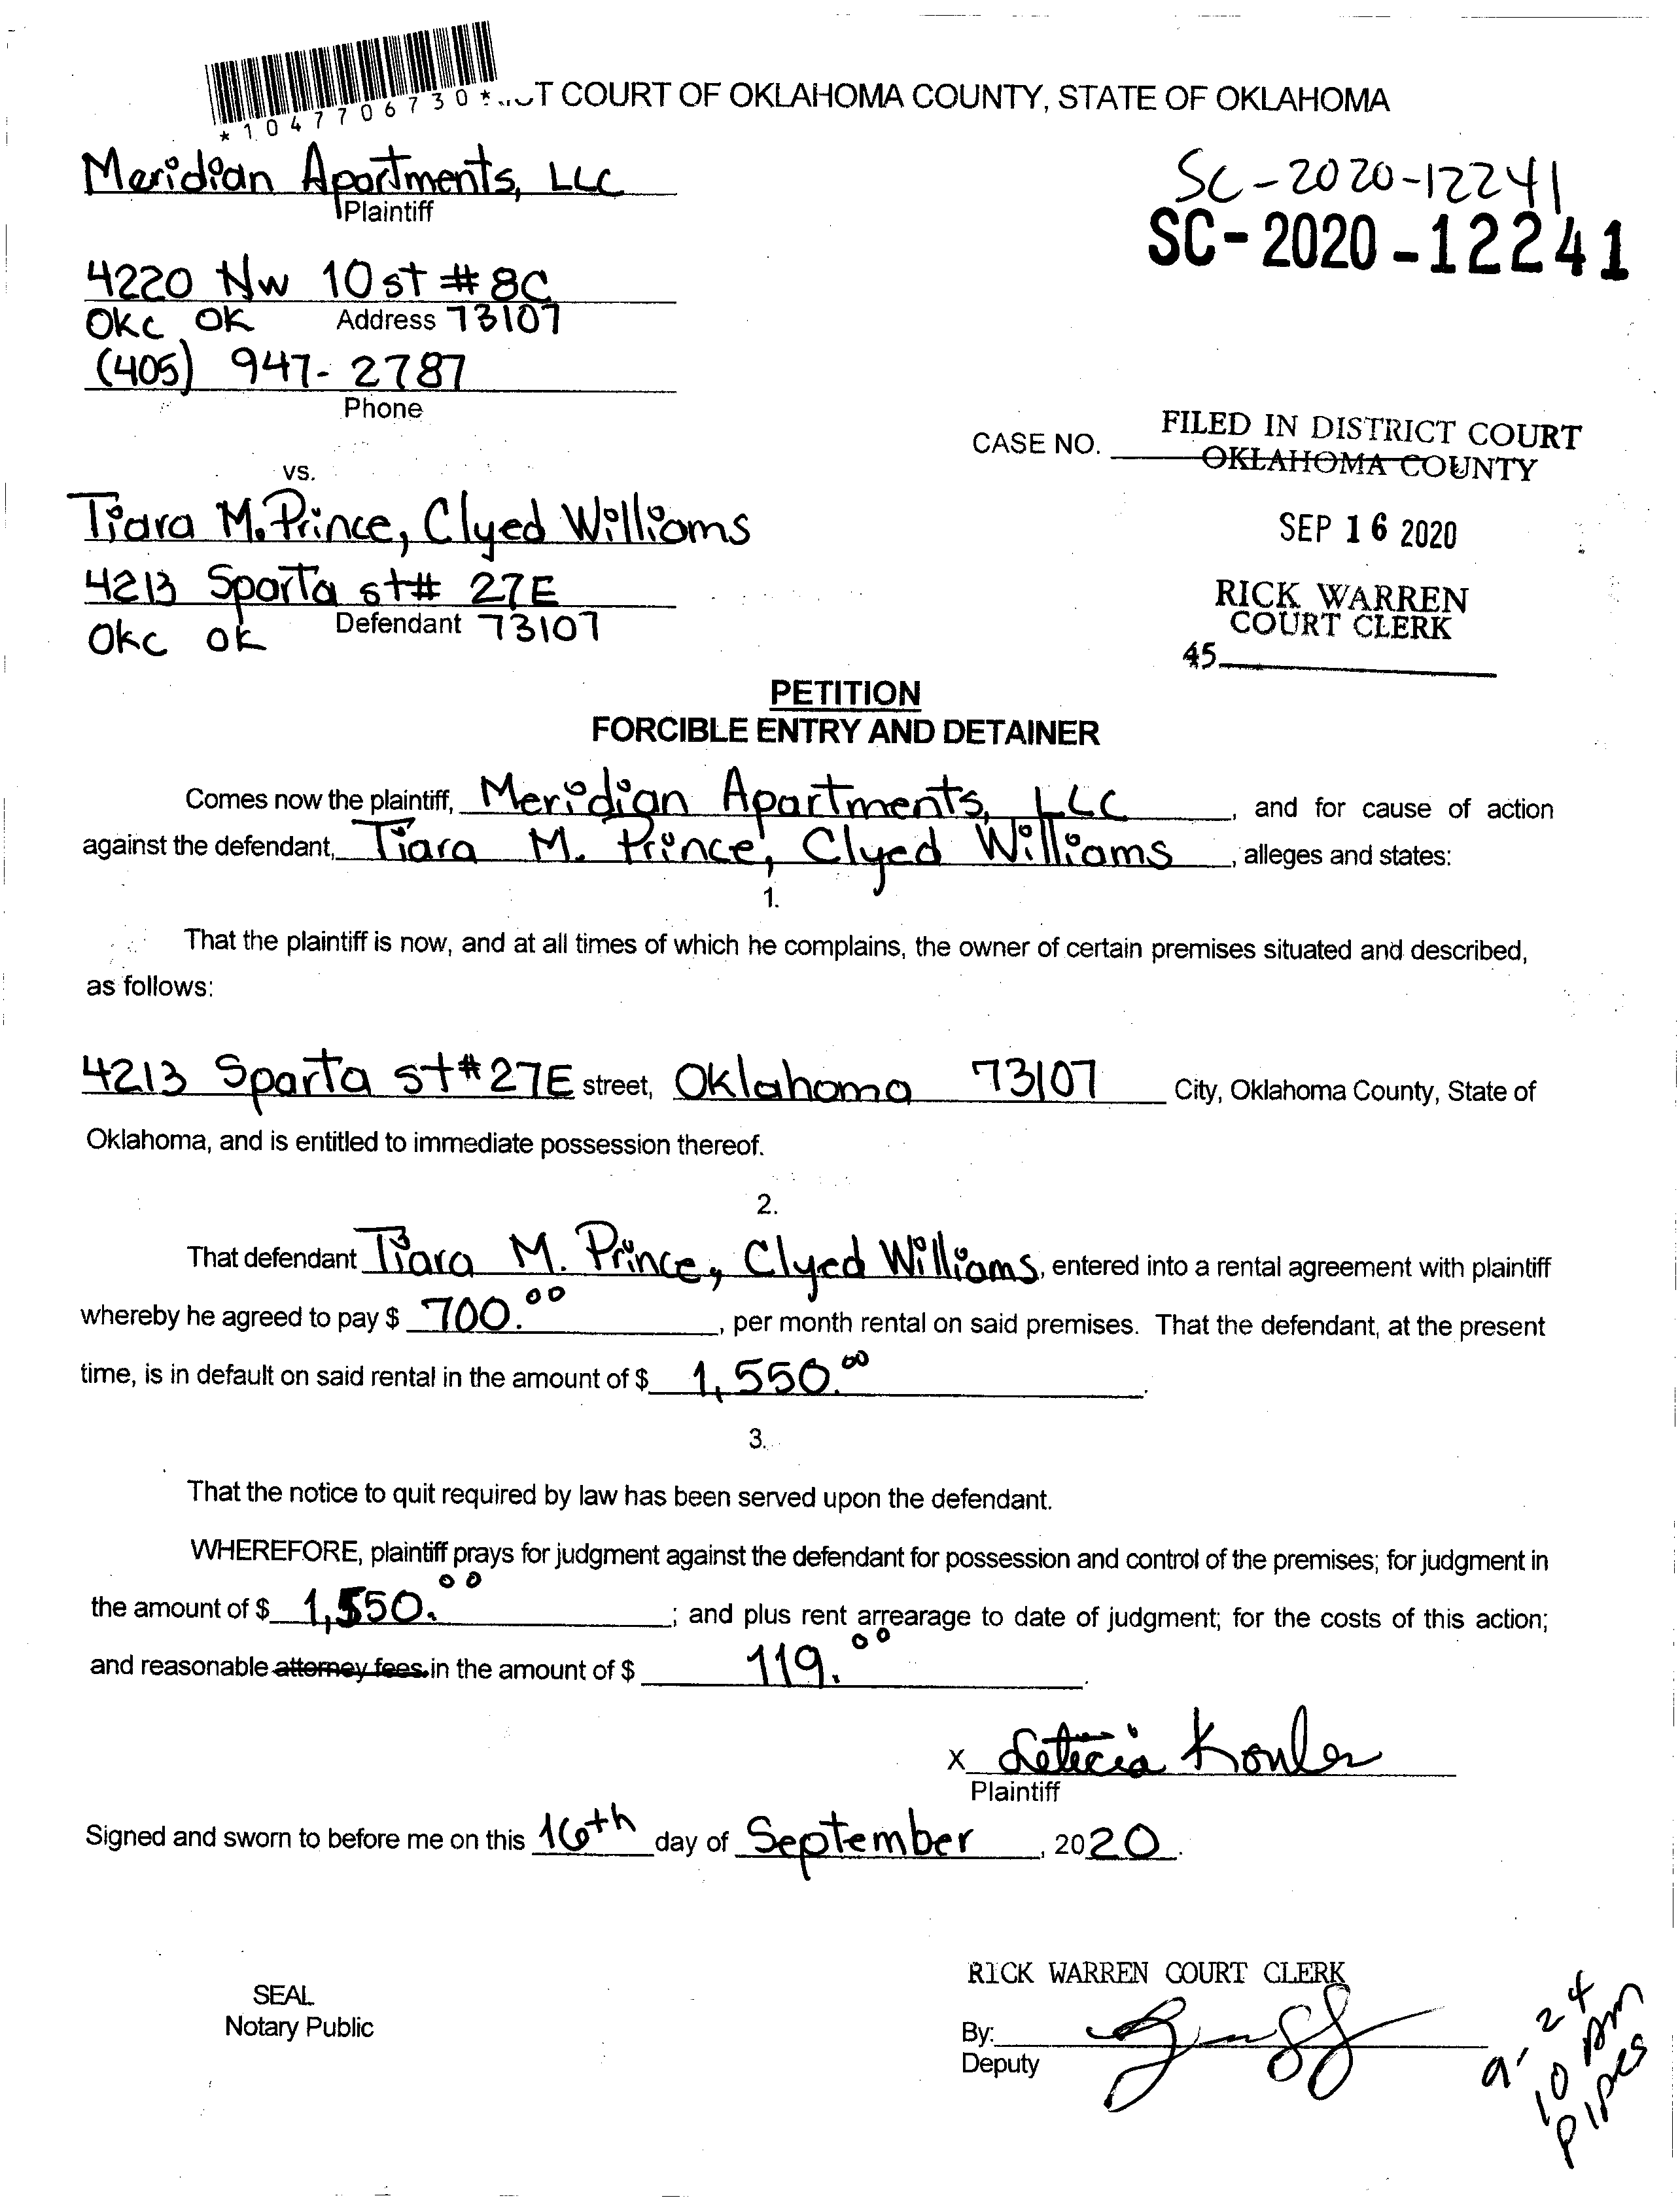 *1047706730*
T COURT OF OKLAHOMA COUNTY, STATE OF OKLAHOMA
Meridian Apartments, LLC
Plaintiff
SC-2020-12241
SC-2020-12241
4220 NW 10 st # 8C
OKC OK Address 73107
(405) 947-2787
Phone
CASE NO.
FILED IN DISTRICT COURT
OKLAHOMA COUNTY
vs.
Tiara M. Prince, Clyed Williams
SEP 16 2020
4213 Sparta st# 27E
Defendant 73107
OKC OK
RICK WARREN
COURT CLERK
45
PETITION
FORCIBLE ENTRY AND DETAINER
Comes now the plaintiff, Meridian Apartments, LLC, and for cause of action
against the defendant, Tiara M. Prince, Clyed Williams, alleges and states:
1.
That the plaintiff is now, and at all times of which he complains, the owner of certain premises situated and described,
as follows:
4213 Sparta st#27E street, Oklahoma 73107 City, Oklahoma County, State of
Oklahoma, and is entitled to immediate possession thereof.
2.
That defendant Tiara M. Prince, Clyed Williams, entered into a rental agreement with plaintiff
whereby he agreed to pay $ 700.00, per month rental on said premises. That the defendant, at the present
time, is in default on said rental in the amount of $ 1,550.00.
3.
That the notice to quit required by law has been served upon the defendant.
WHEREFORE, plaintiff prays for judgment against the defendant for possession and control of the premises; for judgment in
the amount of $ 1,550.00; and plus rent arrearage to date of judgment; for the costs of this action;
and reasonable attorney fees in the amount of $ 119.00.
X Leticia
Plaintiff
Signed and sworn to before me on this 16th day of September, 2020.
SEAL
Notary Public
RICK WARREN COURT CLERK
By:
Deputy
9-24
10 AM
Pipes